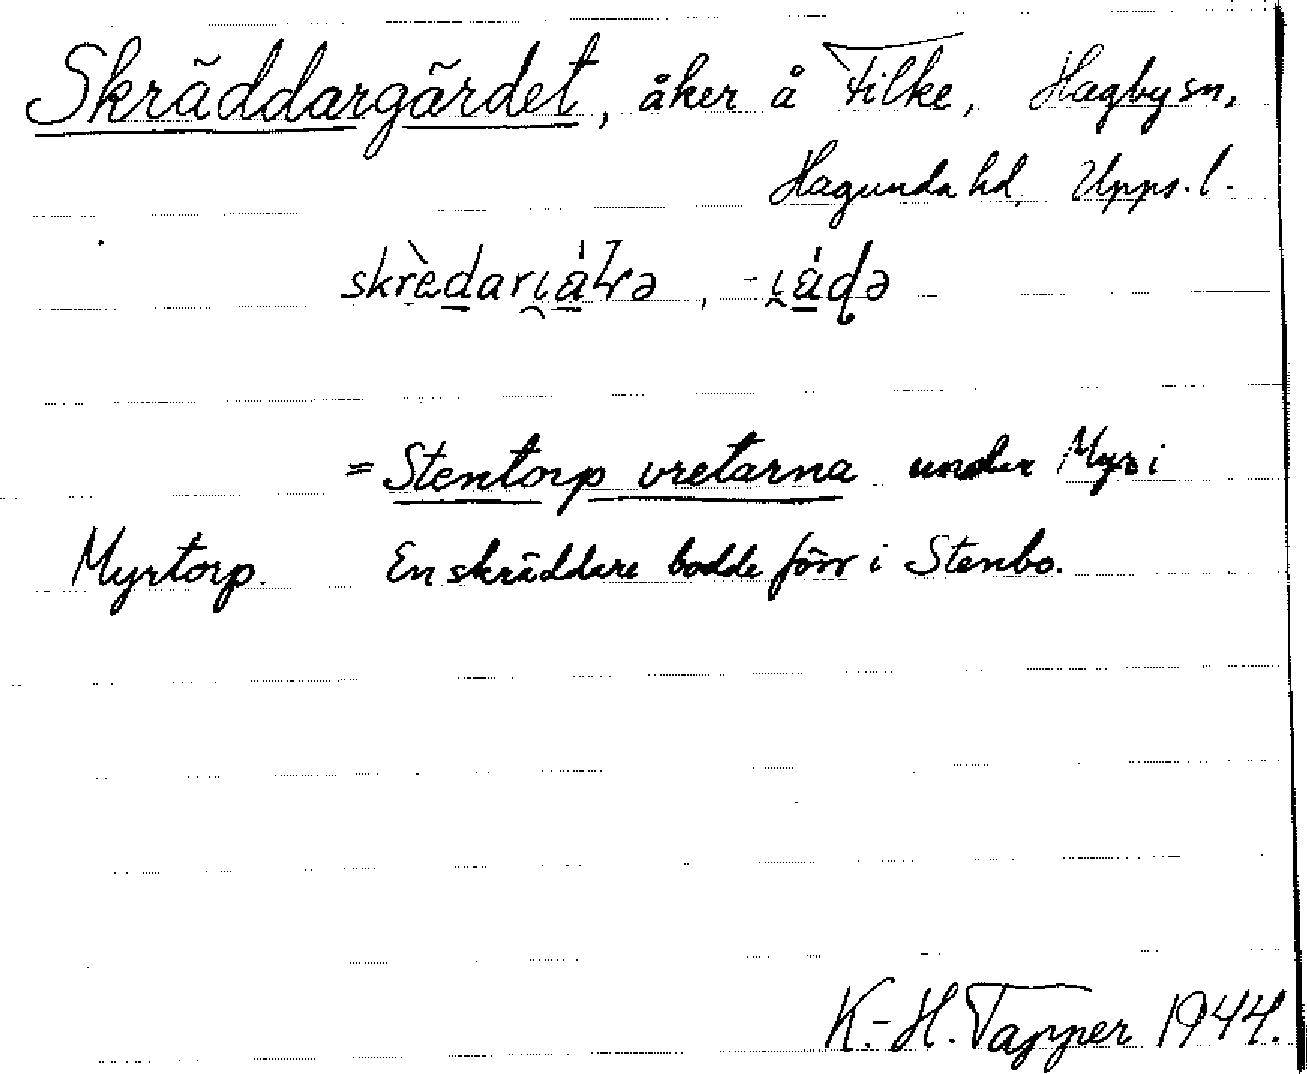 Skräddargärdet, åker å Filke, Hagby sn,
Hagunda hd, Upps. l.
= Stentorp vretarna under Myr i
Myrtorp. En skräddare bodde förr i Stenbo.
K.-H. Tapper 1944.